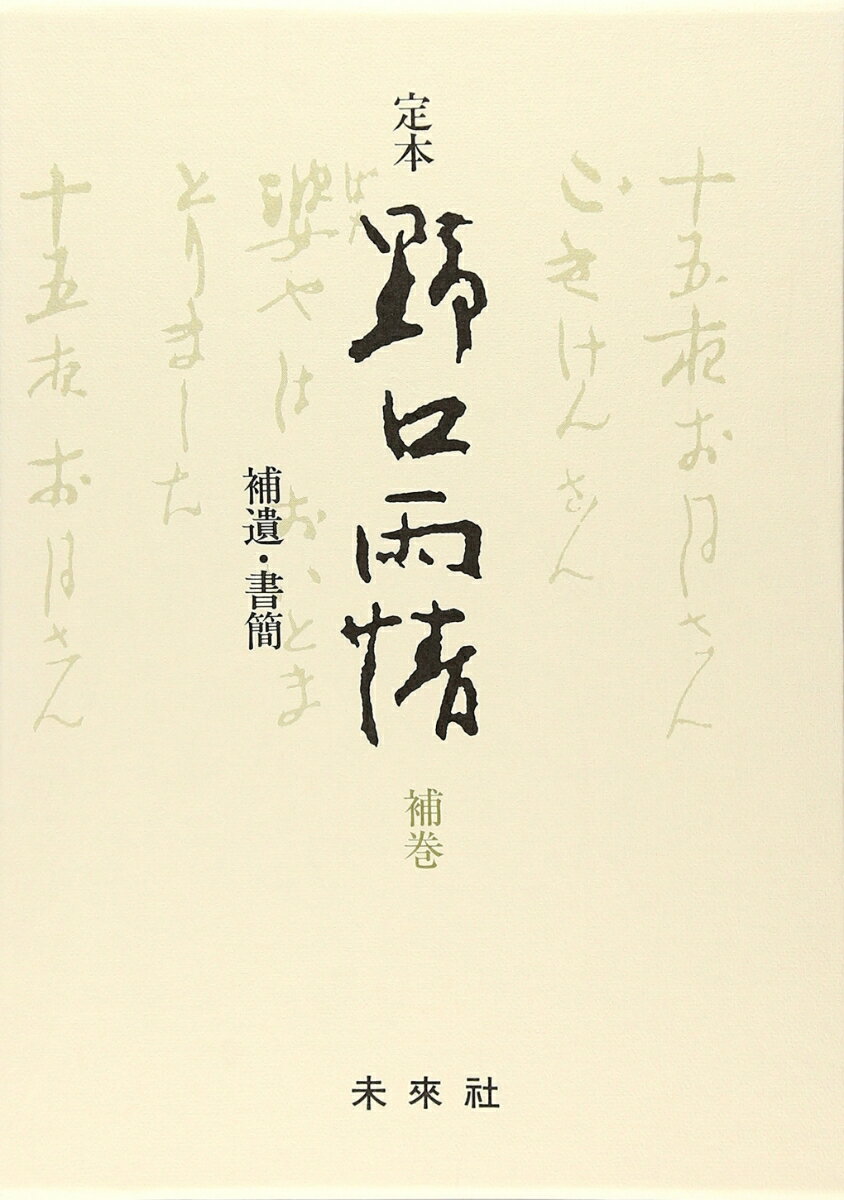 定本
野口雨情
補巻
補遺・書簡
十五夜お月さん
ごきげんさん
婆やはおいとま
とりました
十五夜お月さん
未來社